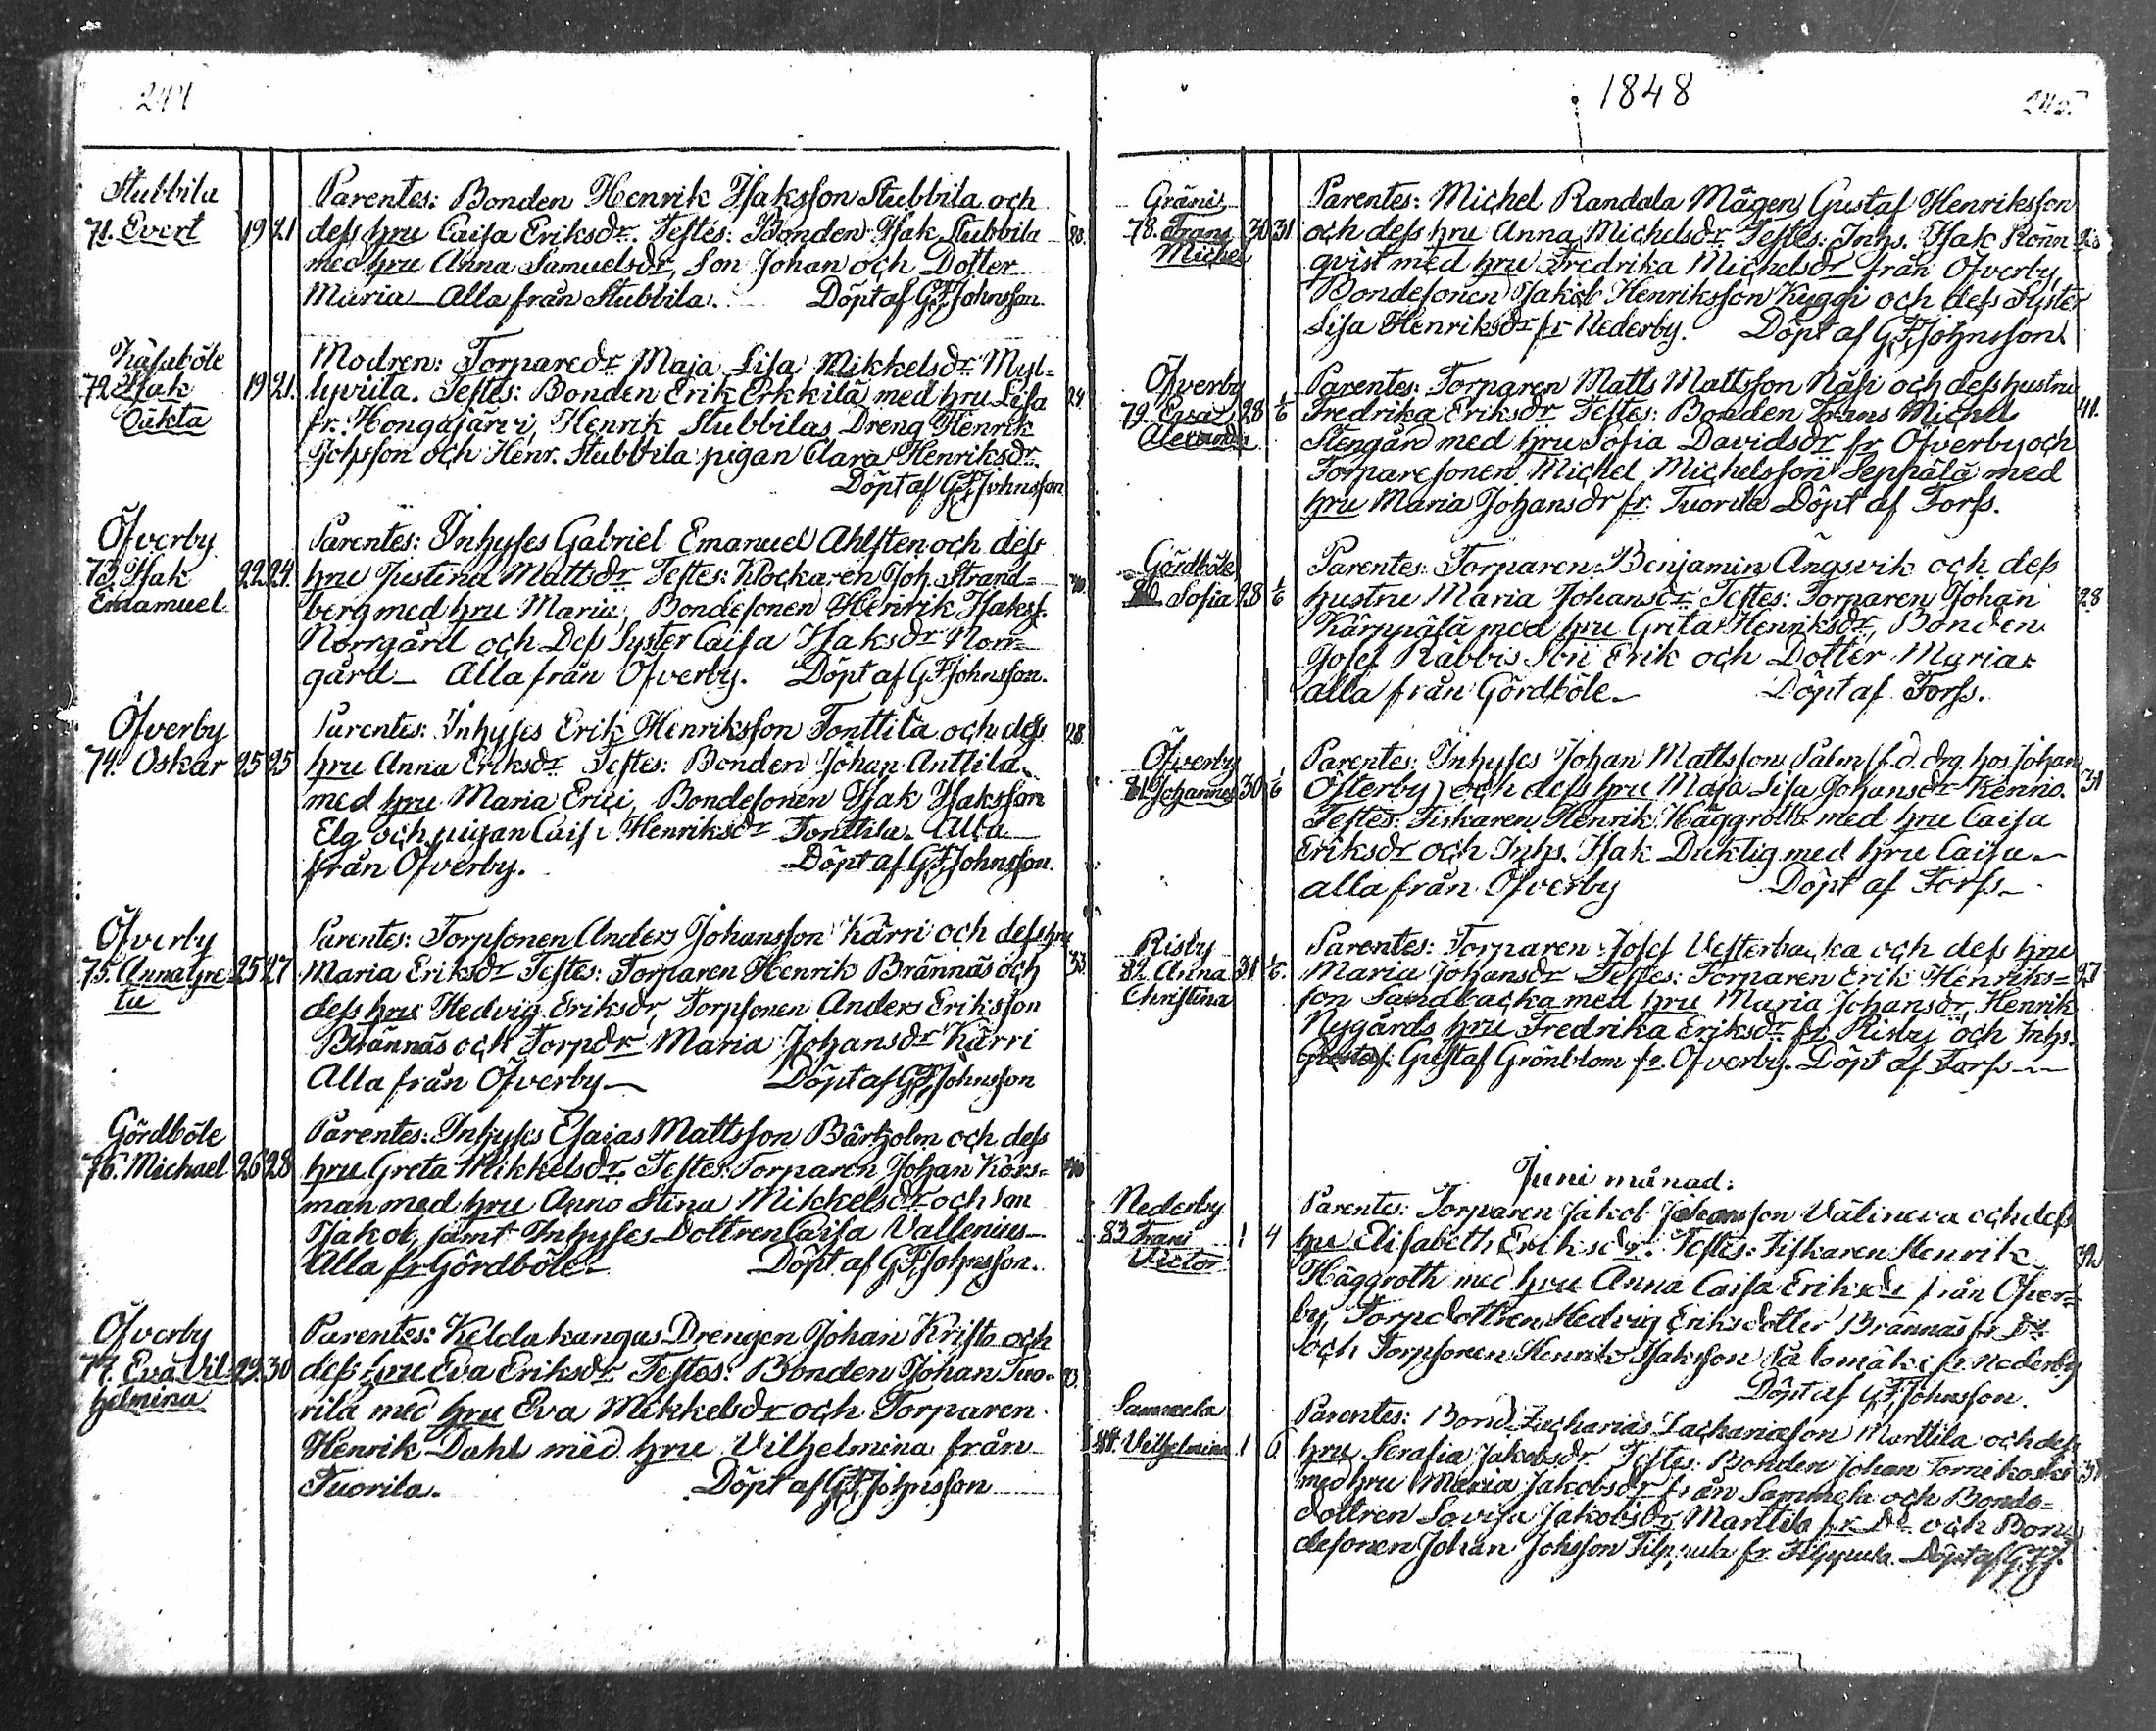 244
Stubbila
71. Evert 19 21
Parentes: Bonden Henrik Isaksson Stubbila och
dess hru Caisa Eriksdr. Testes: Bonden Isak Stubbila
med hru Anna Samuelsdr, Son Johan och Dotter
Maria – Alla från Stubbila. Döpt af G.F. Johnsson.
72. Isak 19 21.
Oäkta
Modren: Torparedr Maja Lisa Mikkelsdr Myl=
lyviita. Testes: Bonden Erik Erkkilä med hru Lisa 24.
fr. Hongajärvi, Henrik Stubbilas Dreng Henrik
Johsson och Henr. Stubbila pigan Clara Henriksdr.
Döpt af G.F. Johnsson
Öfverby
73. Isak 22 24.
Emamuel
Parentes: Inhyses Gabriel Emanuel Ahlsten och dess
hru Justina Mattsdr Testes: Klockaren Joh. Strand= 40.
berg med hru Maria, Bondesonen Henrik Isakss.
Norrgård och Dess Syster Caisa Isaksdr Norr=
gård – Alla från Öfverby. Döpt af G.F. Johnsson.
Öfverby
74. Oskar 25 25
Parentes: Inhyses Erik Henriksson Tonttila och dess 28.
hru Anna Eriksdr Testes: Bonden Johan Anttila
med hru Maria Erici, Bondesonen Isak Isaksson
Elg och pigan Caisa Henriksdr Tonttila. Alla
från Öfverby. Döpt af G.F. Johnsson.
Öfverby
75. Anna Gre= 25 27
ta
Parentes: Torpsonen Anders Johansson Kärri och dess hru
Maria Eriksdr Testes: Torparen Henrik Brännäs och 33.
dess hru Hedvig Eriksdr, Torpsonen Anders Eriksson
Brännäs och Torpdr Maria Johansdr Kärri
Alla från Öfverby – Döpt af G.F. Johnsson
Gördböle
76. Michael 26 28
Parentes: Inhyses Esaias Mattsson Bärholm och dess
hru Greta Mikkelsdr. Testes: Torparen Johan Körs= 40
man med hru Anna Stina Mikkelsdr och Son
Jakob, samt Inhyses Dottren Caisa Vallenius –
Alla fr Gördböle – Döpt af G.F. Johnsson.
Öfverby
77. Eva Vil= 29. 30
helmina
Parentes: Keldakangas Drengen Johan Krista och
dess hru Eva Eriksdr. Testes: Bonden Johan Tuo=
rila med hru Eva Mikkelsdr och Torparen
Henrik Dahl med hru Vilhelmina från
Tuorila. Döpt af G.F. Johnsson
1848
245.
Gräni
78. Frans 30 31
Michel
Parentes: Michel Randala Mågen Gustaf Henriksson
och dess hru Anna Michelsdr Testes: Inhs. Isak Rönn
qvist med hru Fredrika Michelsdr från Öfverby,
Bondesonen Jakob Henriksson Kyggi och dess Syster
Lisa Henriksdr fr Nederby. Döpt af G.F. Johnsson
Öfverby
79. 28 1/6
Alexander
Parentes: Torparen Matts Mattsson Näsi och dess hustru
Fredrika Eriksdr Testes: Bonden Frans Michel 41.
Stengård med hru Sofia Davidsdr fr Öfverby och
Torparesonen Michel Michelsson Seppälä med
hru Maria Johansdr fr: Tuorila Döpt af Forss.
Gördböle
80 Sofia 28 1/6
Parentes: Torparen Benjamin Ängsvik och dess
hustru Maria Johansdr Testes: Torparen Johan 28
Kärnpälä med hru Greta Henriksdr, Bonden
Josef Rabbis Son Erik och Dotter Maria
alla från Gördböle – Döpt af Forss.
Öfverby
81 Johannes 30 1/6
Parentes: Inhyses Johan Mattsson Palm (f.d. drg. hos Johan
Österby) och dess hru Maja Lisa Johansdr Kennio. 31
Testes: Fiskaren Henrik Häggroth med hru Caisa
Eriksdr och Inhs. Isak Duktig med hru Caisa –
alla från Öfverby Döpt af Forss –
Risby
82. Anna 31 1/6.
Christina
Parentes: Torparen Josef Vesterbacka och dess hru
Maria Johansdr Testes: Torparen Erik Henriks= 27
son Sandbacka med hru Maria Johansdr, Henrik
Nygårds hru Fredrika Eriksdr fr Risby och Inhs.
Gustaf Grönblom fr. Öfverby. Döpt af Forss –
Juni månad:
Nederby
83 Frans 1 4
Victor
Parentes: Torparen Jakob Johansson Välineva och dess
hru Elisabeth Eriksdr. Testes: Fiskaren Henrik
Häggroth med hru Anna Caisa Eriksdr från Öfver=
by, Torpdottren Hedvig Eriksdotter Brännäs fr Do
och Torpsonen Henrik Isaksson Salomäki fr. Nederby
Döpt af G.F. Johnsson.
Sammela
84. Vilhelmina 1 6
Parentes: Bond. Zacharias Zachariasson Marttila och dess
hru Serafia Jakobsdr Testes: Bonden Johan Tornikoski
med hru Maria Jakobsdr från Sammela och Bonde=
dottren Lovisa Jakobsdr Marttila fr Do och Bon=
desonen Johan Johsson Filppula fr. Filppula. Döpt af G.F.J.